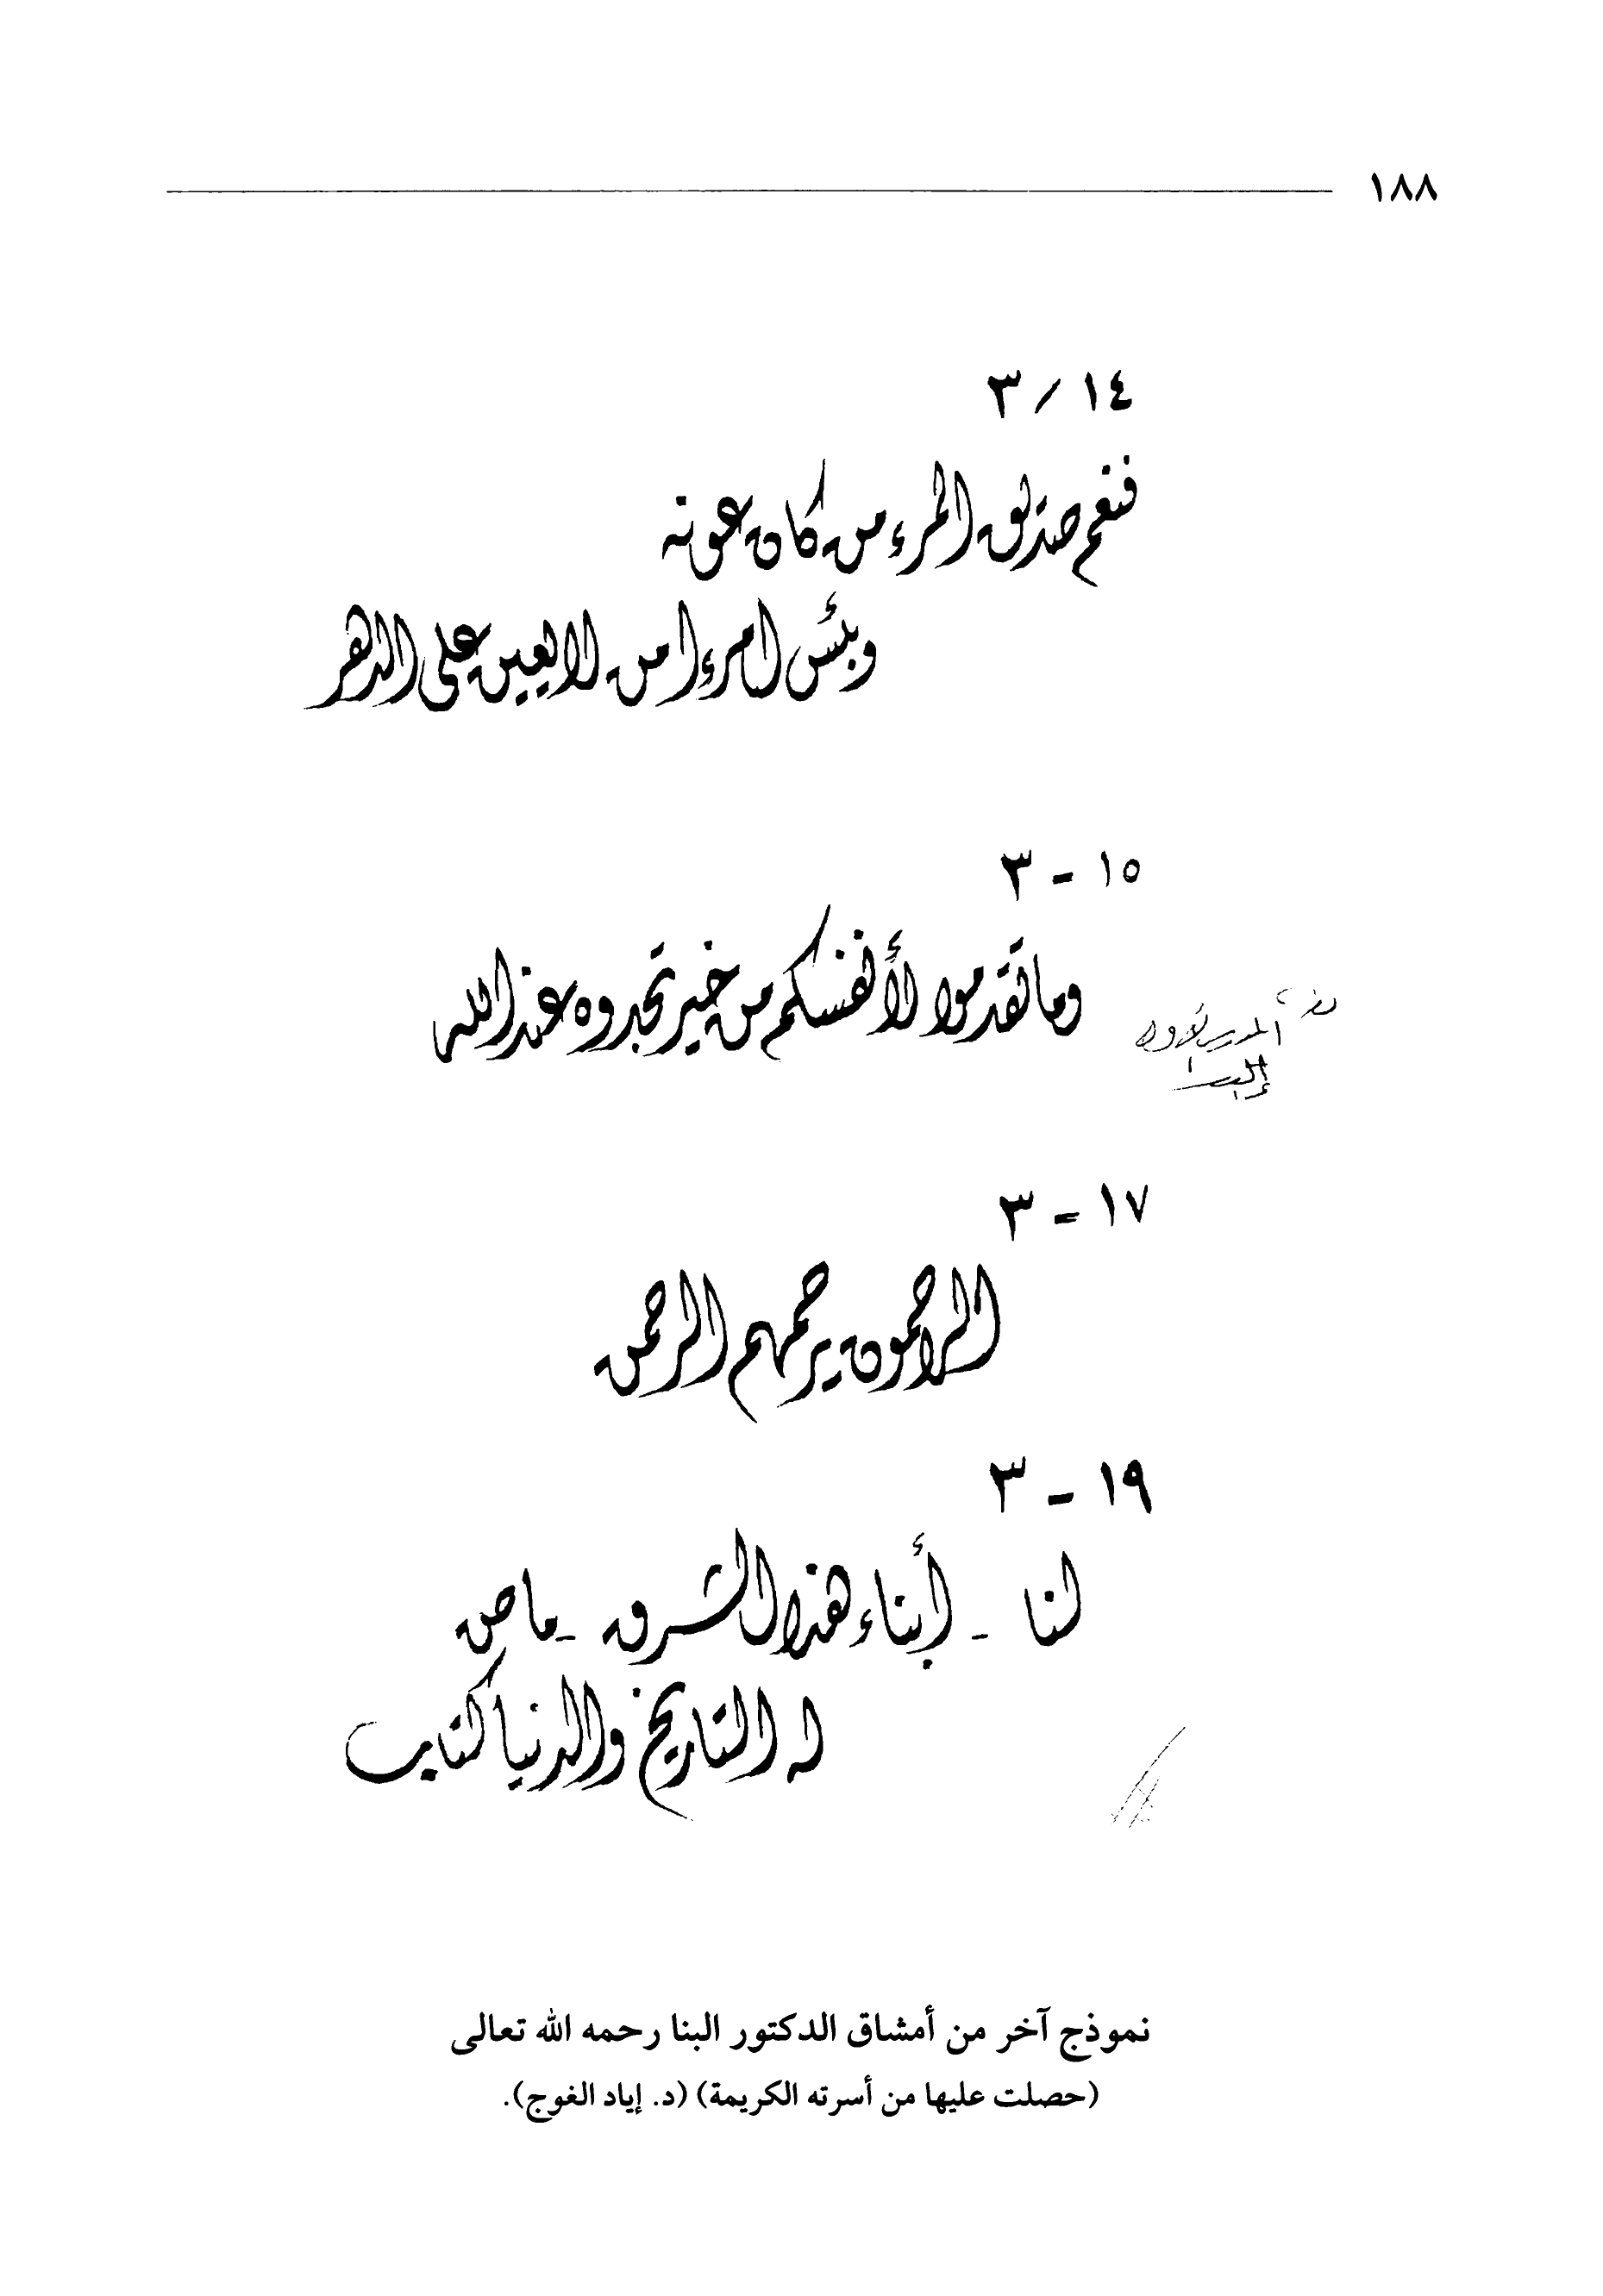 ١٨٨
١٤ / ٣
فنعم صديق المرء من كان عونه
وبئس امرءا من لا يعين على الدهر
١٥ - ٣
وما تقدموا لأنفسكم من خير تجدوه عند الله
١٧ - ٣
الراحمون يرحمهم الرحمن
١٩ - ٣
لنا - أبناء هذا الشرق - ماض
له التاريخ والدنيا كتاب
نموذج آخر من أمشاق الدكتور البنا رحمه الله تعالى
(حصلت عليها من أسرته الكريمة) (د. إياد الغوج).